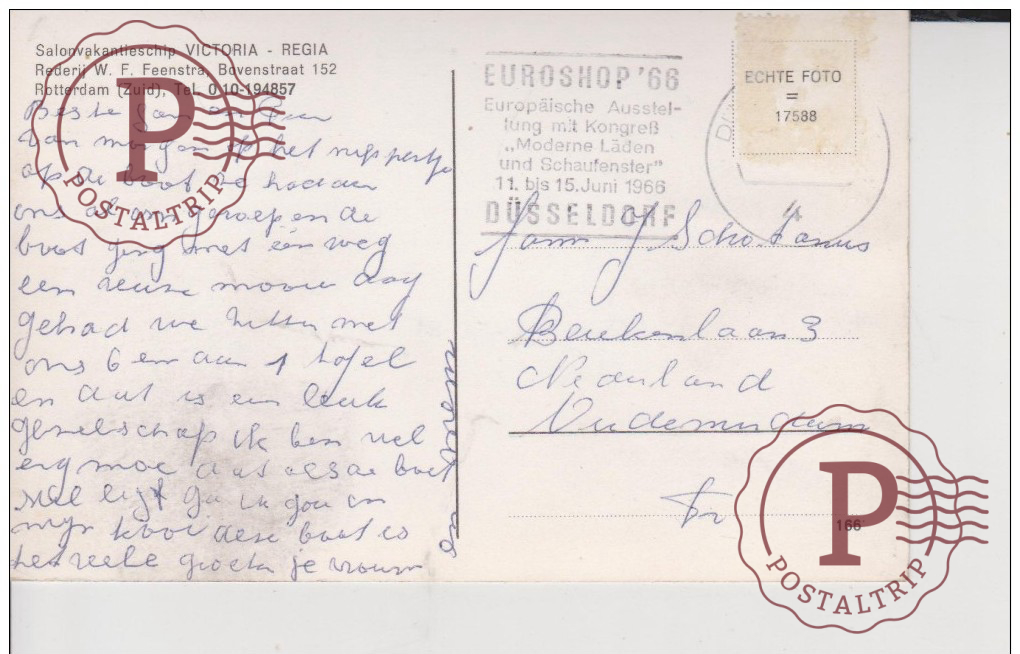 Salonvakantieschip VICTORIA - REGIA
Rederij W. F. Feenstra, Bovenstraat 152
Rotterdam (Zuid), Tel. 010-194857
Beste Jan en
van morgen op het nippertje
op de boot we hadden
ons al om geroepen de
boot ging met één weg
een reuze mooie dag
gehad we zitten met
ons 6 en aan 1 tafel
en dat is een leuk
gezelschap ik ben wel
erg moe dus als de boot
stil ligt ga ik gou in
mijn kooi deze boot is
het hele groeten je vrouw
EUROSHOP '66
Europäische Ausstel-
lung mit Kongreß
„Moderne Läden
und Schaufenster"
11. bis 15. Juni 1966
DÜSSELDORF
ECHTE FOTO
=
17588
Fam J Schotanus
Beukenlaan 3
Nederland
Oudemirdum
Fr
166
P
POSTALTRIP
P
POSTALTRIP